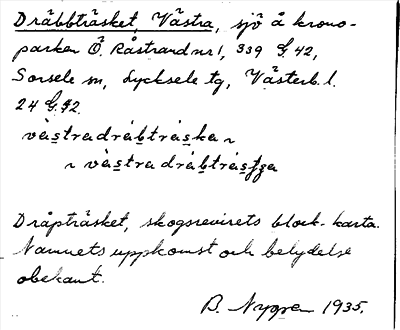 Dräbbträsket, Västra, sjö å krono-
parken Ö. Råstrand nr 1, 339 G. 42,
Sorsele sn, Lycksele tg, Västerb. l.
24 G. 92.
västradräbträska ~
~ västradräbträsʃʒa
Dräpträsket, skogsrevirets block-karta.
Namnets uppkomst och betydelse
obekant.
B. Nygren 1935.